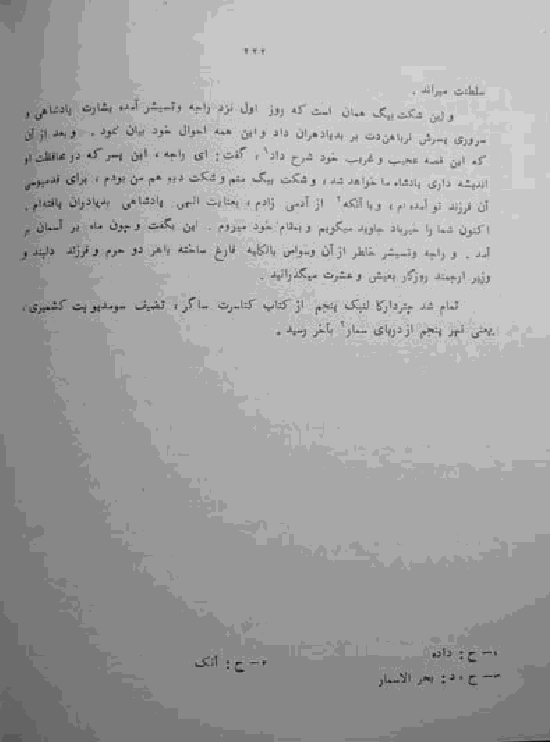 ۲۲۲
سلطنت میراند .
و این شکت بیگ همان است که روز اول نزد راجه وتسیشر آمده بشارت پادشاهی و
سروری پسرش نرباهن‌دت بر بدیادهران داد و این همه احوال خود بیان نمود . و بعد از آن
که این قصه عجیب و غریب خود شرح داد۱، گفت : ای راجه ، این پسر که در محافظت او
اندیشه داری پادشاه ما خواهد شد ، و شکت بیگ منم و شکت دیو هم من بودم ، برای قدمبوسی
آن فرزند تو آمده‌ام ، و با آنکه۲ از آدمی زادم ، بعنایت الهی پادشاهی بدیادران یافته‌ام .
اکنون شما را خیرباد جاوید میگویم و بمقام خود میروم . این بگفت و چون ماه بر آسمان بر
آمد . و راجه وتسیشر خاطر از آن وسواس بالکلیه فارغ ساخته باهر دو حرم و فرزند دلبند و
وزیر ارجمند روزگار بعیش و عشرت میگذرانید .
تمام شد چتردارکا لنبک پنجم از کتاب کتاسرت ساگر ، تصنیف سومدیو پت کشمیری ،
یعنی نهر پنجم از دریای سمار۳ بآخر رسید .
۱— ح : داده
۲— ح : آنک
۳— ح ، د : بحر الاسمار